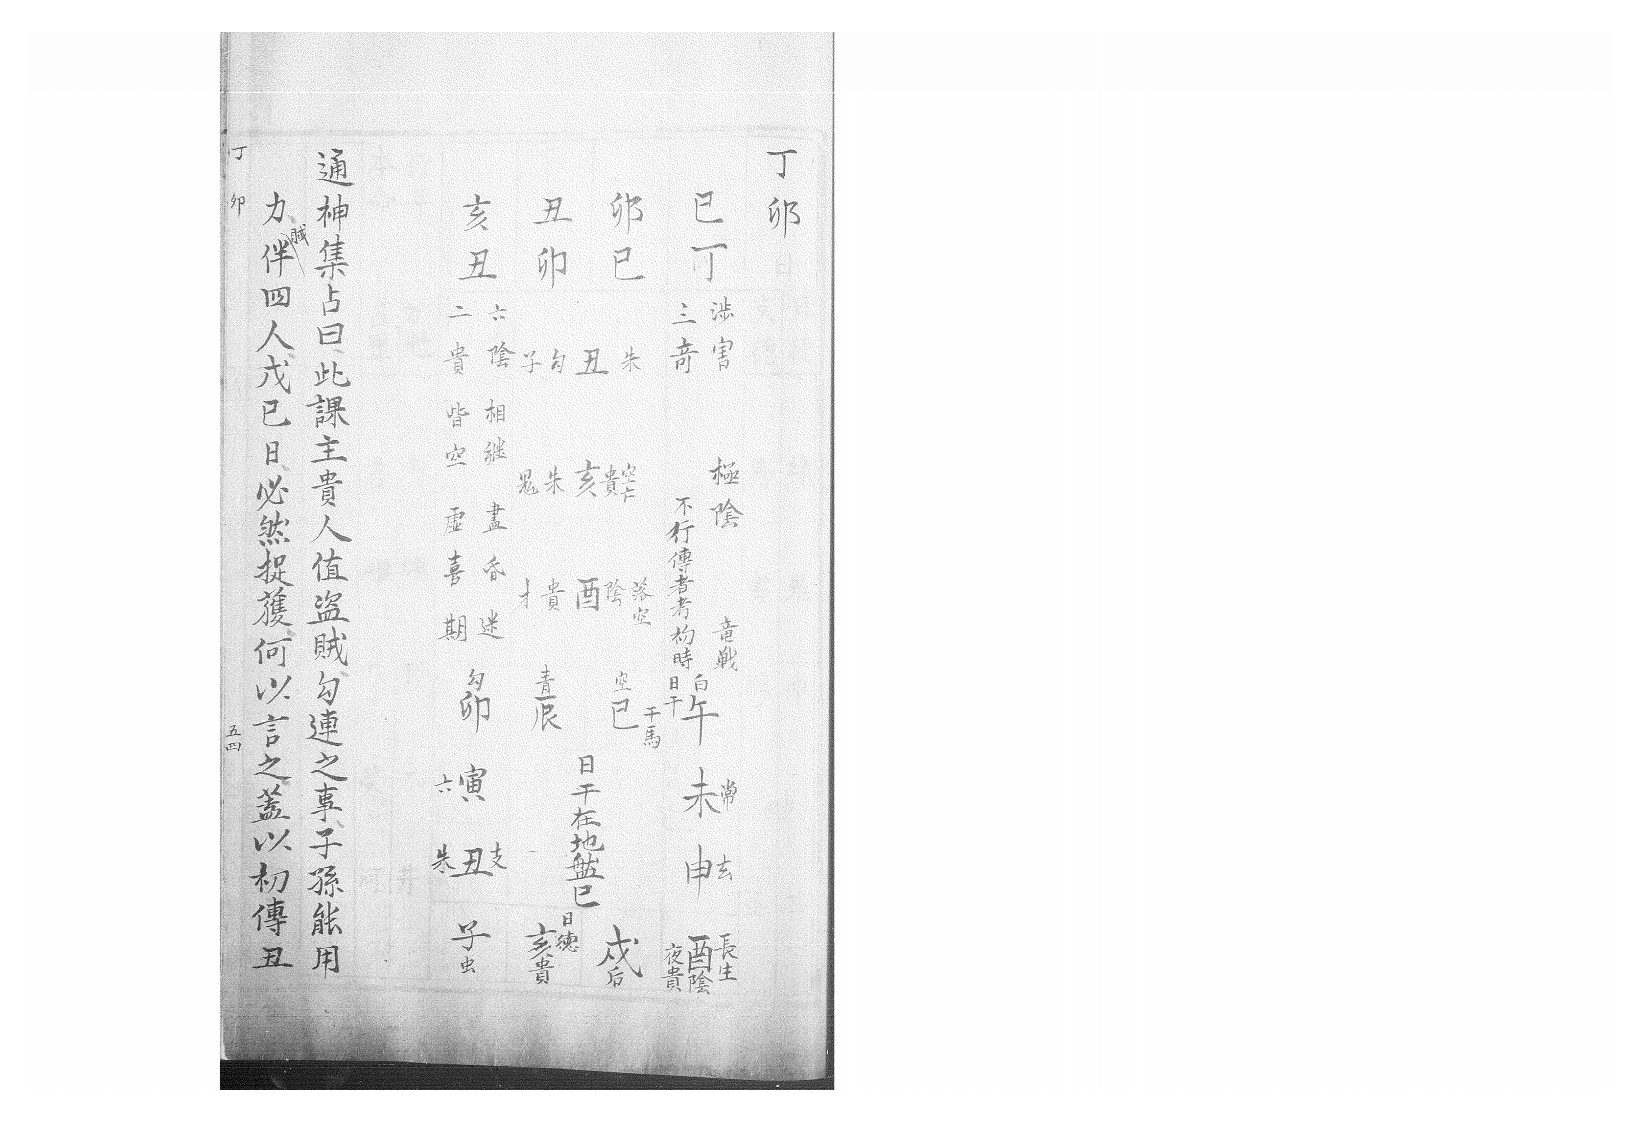 丁卯
巳丁
卯巳
丑卯
亥丑
涉害 極陰 竜戰
三奇 不行傳者考初時
朱丑勾子
空亡貴亥朱鬼
落空陰酉貴才
六陰相继盡昏迷
二貴皆空虛喜期
白午日干
常未
玄申
長生酉陰夜貴
干馬巳空
青辰
勾卯
寅六
支丑朱
子虫
日德亥貴
戌后
日干在地盤巳
通神集占曰此課主貴人值盜賊勾連之事子孫能用
力賊伴四人戊巳日必然捉獲何以言之蓋以初傳丑
丁卯
五四